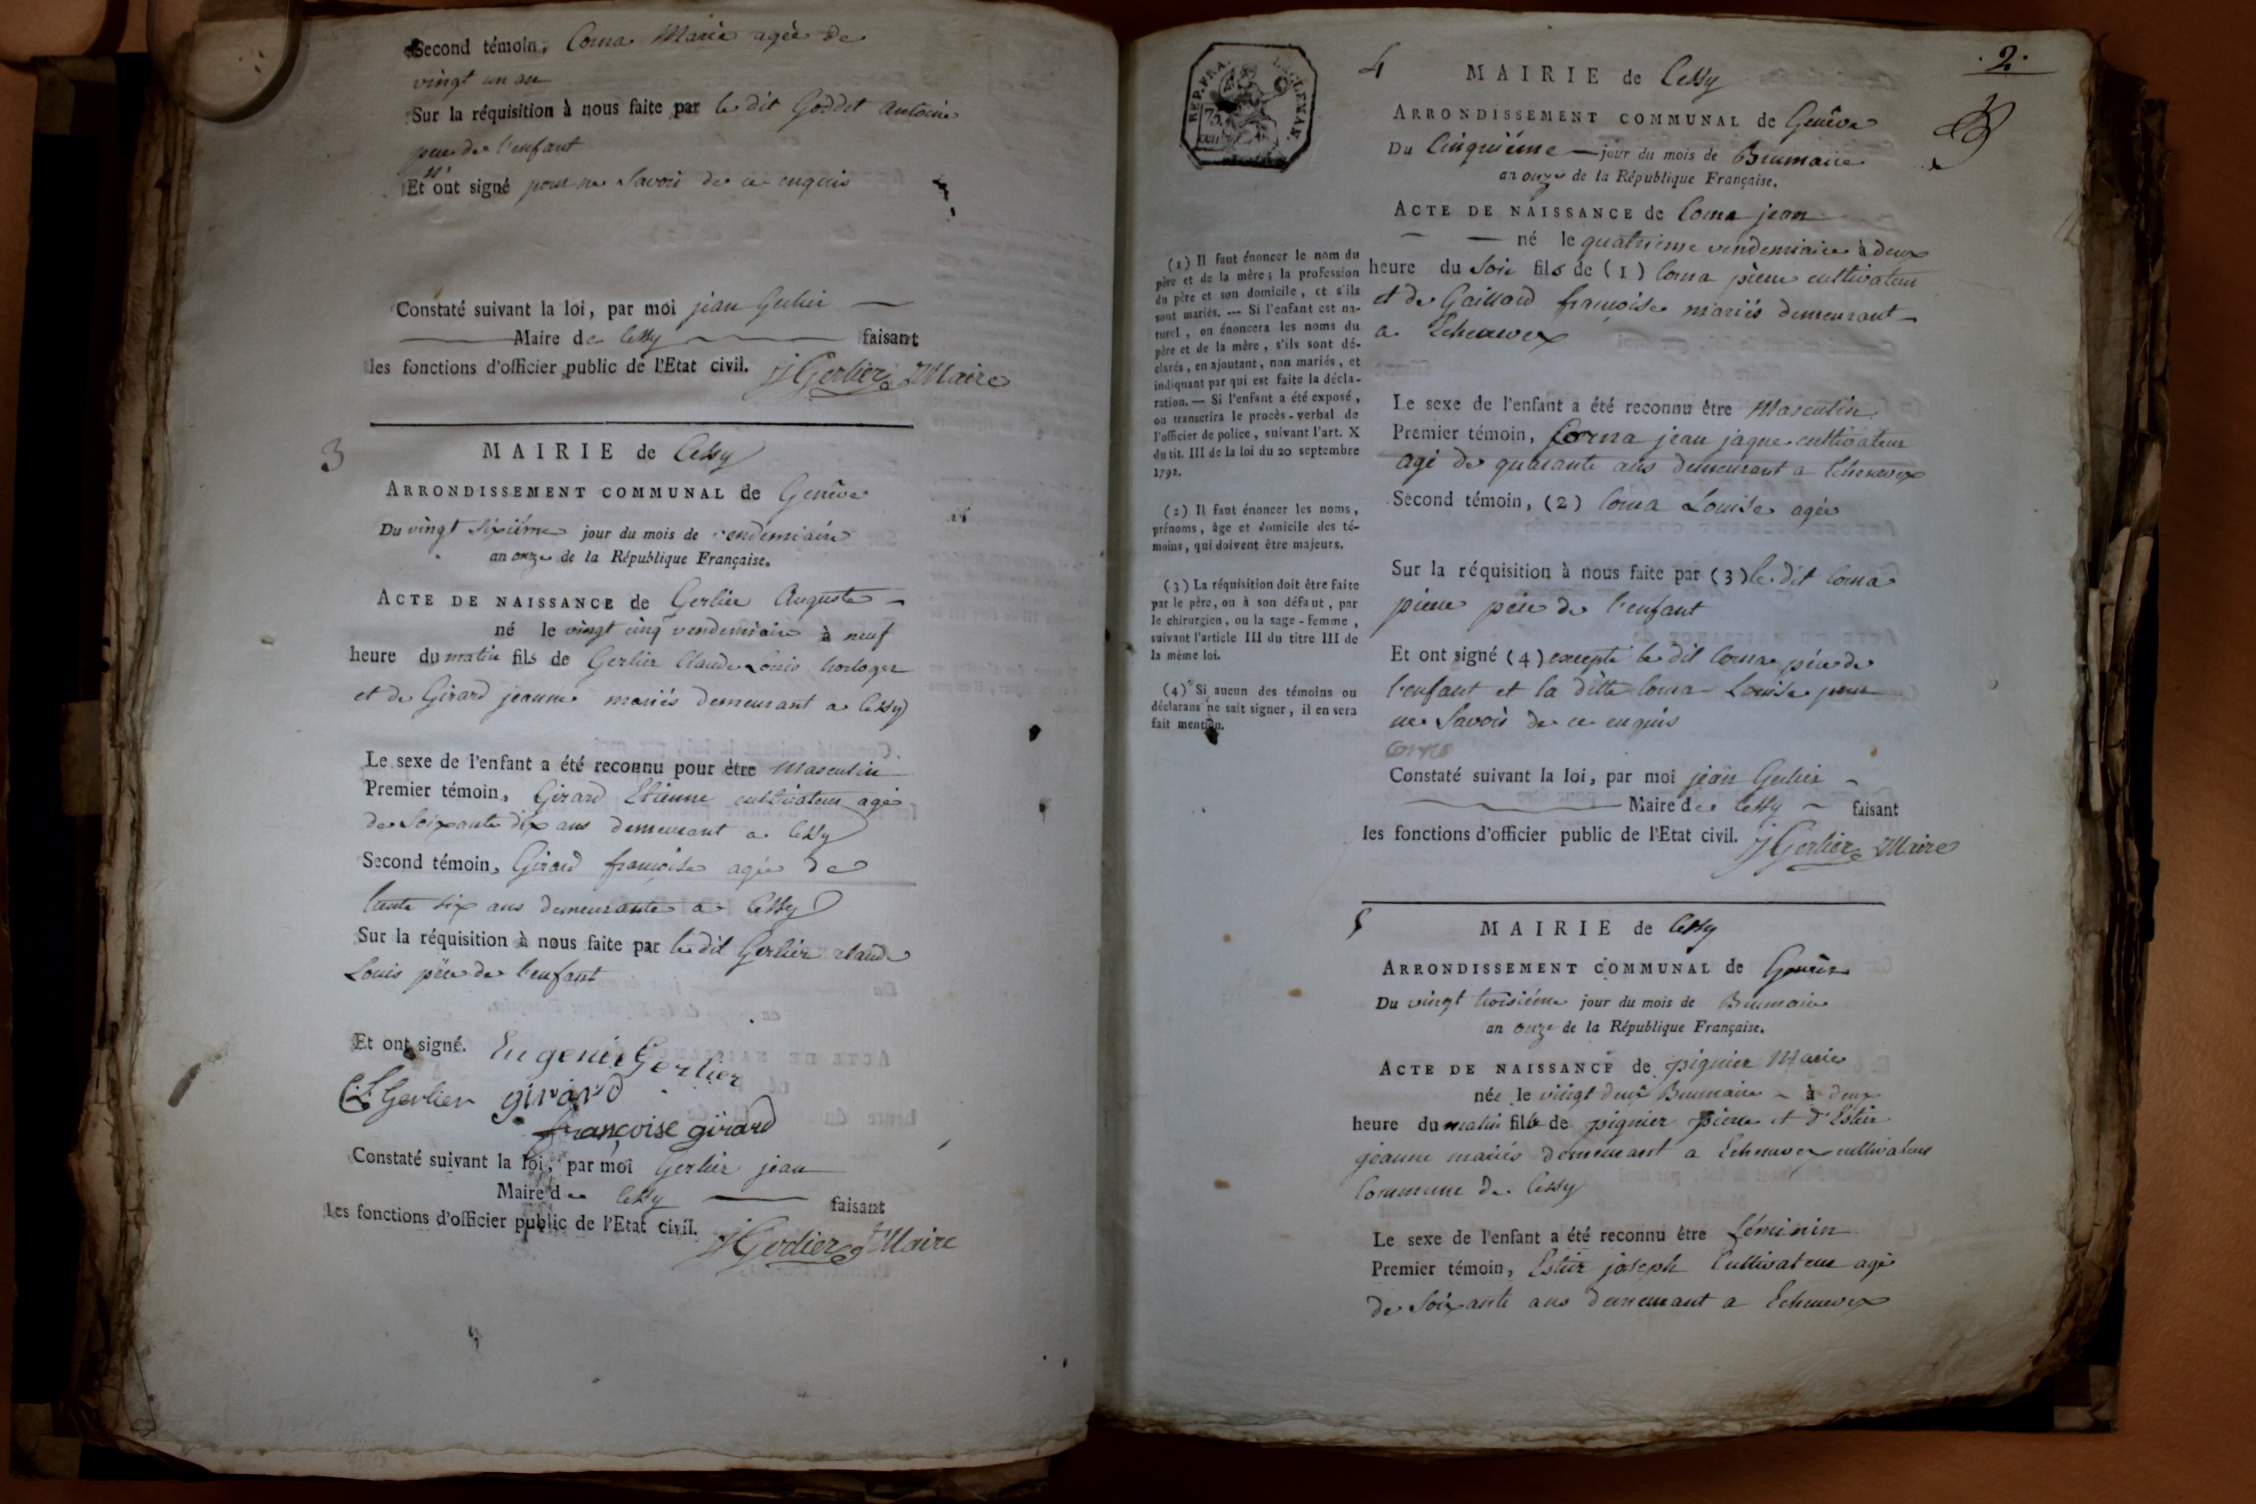 Second témoin, Corna Marie agée de
vingt un an
Sur la réquisition à nous faite par le dit Goddet antoine
pere de l'enfant
Et n'ont signé pour ne Savoir de ce enquis
Constaté suivant la loi, par moi jean Gerlier
Maire de Cessy faisant
les fonctions d'officier public de l'Etat civil. J Gerlier Maire
3
MAIRIE de Cessy
ARRONDISSEMENT COMMUNAL de Genêve
Du vingt sixiéme jour du mois de vendémiaire
an onze de la République Française.
ACTE DE NAISSANCE de Gerlier Auguste
né le vingt cinq vendemiaire à neuf
heure du matin fils de Gerlier Claude Louis horloger
et de Girard jeanne mariés demeurant a Cessy
Le sexe de l'enfant a été reconnu pour être Masculin
Premier témoin, Girard Etienne cultivateur agé
de Soixante dix ans demeurant a Cessy
Second témoin, Girard françoise agée de
trente six ans demeurante a Cessy
Sur la réquisition à nous faite par le dit Gerlier claude
Louis pére de l'enfant
Et ont signé. Eugenie Gerlier
C L Gerlier girard
françoise girard
Constaté suivant la loi, par moi Gerlier jean
Maire de Cessy faisant
les fonctions d'officier public de l'Etat civil. J Gerlier Maire
REP. FRA.
75
4
2.
MAIRIE de Cessy
ARRONDISSEMENT COMMUNAL de Genêve
Du Cinquiéme jour du mois de Brumaire
an onze de la République Française.
ACTE DE NAISSANCE de Corna jean
né le quatrieme vendemiaire à deux
heure du Soir fils de (1) Corna pierre cultivateur
et de Gaillard françoise mariés demeurant
a Echenevex
Le sexe de l'enfant a été reconnu être Masculin
Premier témoin, Corna jean jaque cultivateur
agé de quarante ans demeurant a Echenevex
Second témoin, (2) Corna Louise agée
Sur la réquisition à nous faite par (3) le dit Corna
pierre pére de l'enfant
Et ont signé (4) excepté le dit Corna pére de
l'enfant et la ditte Corna Louise pour
ne Savoir de ce enquis
Constaté suivant la loi, par moi jean Gerlier
Maire de Cessy faisant
les fonctions d'officier public de l'Etat civil. J Gerlier Maire
(1) Il faut énoncer le nom du
père et de la mère; la profession
du père et son domicile, et s'ils
sont mariés. — Si l'enfant est na-
turel, on énoncera les noms du
père et de la mère, s'ils sont dé-
clarés, en ajoutant, non mariés, et
indiquant par qui est faite la décla-
ration. — Si l'enfant a été exposé,
on transcrira le procès-verbal de
l'officier de police, suivant l'art. X
du tit. III de la loi du 20 septembre
1792.
(2) Il faut énoncer les noms,
prénoms, âge et domicile des té-
moins, qui doivent être majeurs.
(3) La réquisition doit être faite
par le père, ou à son défaut, par
le chirurgien, ou la sage-femme,
suivant l'article III du titre III de
la même loi.
(4) Si aucun des témoins ou
déclarans ne sait signer, il en sera
fait mention.
5
MAIRIE de Cessy
ARRONDISSEMENT COMMUNAL de Genêve
Du vingt troisiéme jour du mois de Brumaire
an onze de la République Française.
ACTE DE NAISSANCE de pignier Marie
née le vingt deux Brumaire à deux
heure du matin fille de pignier pierre et d'Estier
jeanne mariés demeurant a Echenevex cultivateur
Commune de Cessy
Le sexe de l'enfant a été reconnu être féminin
Premier témoin, Estier joseph Cultivateur agé
de Soixante ans demeurant a Echenevex